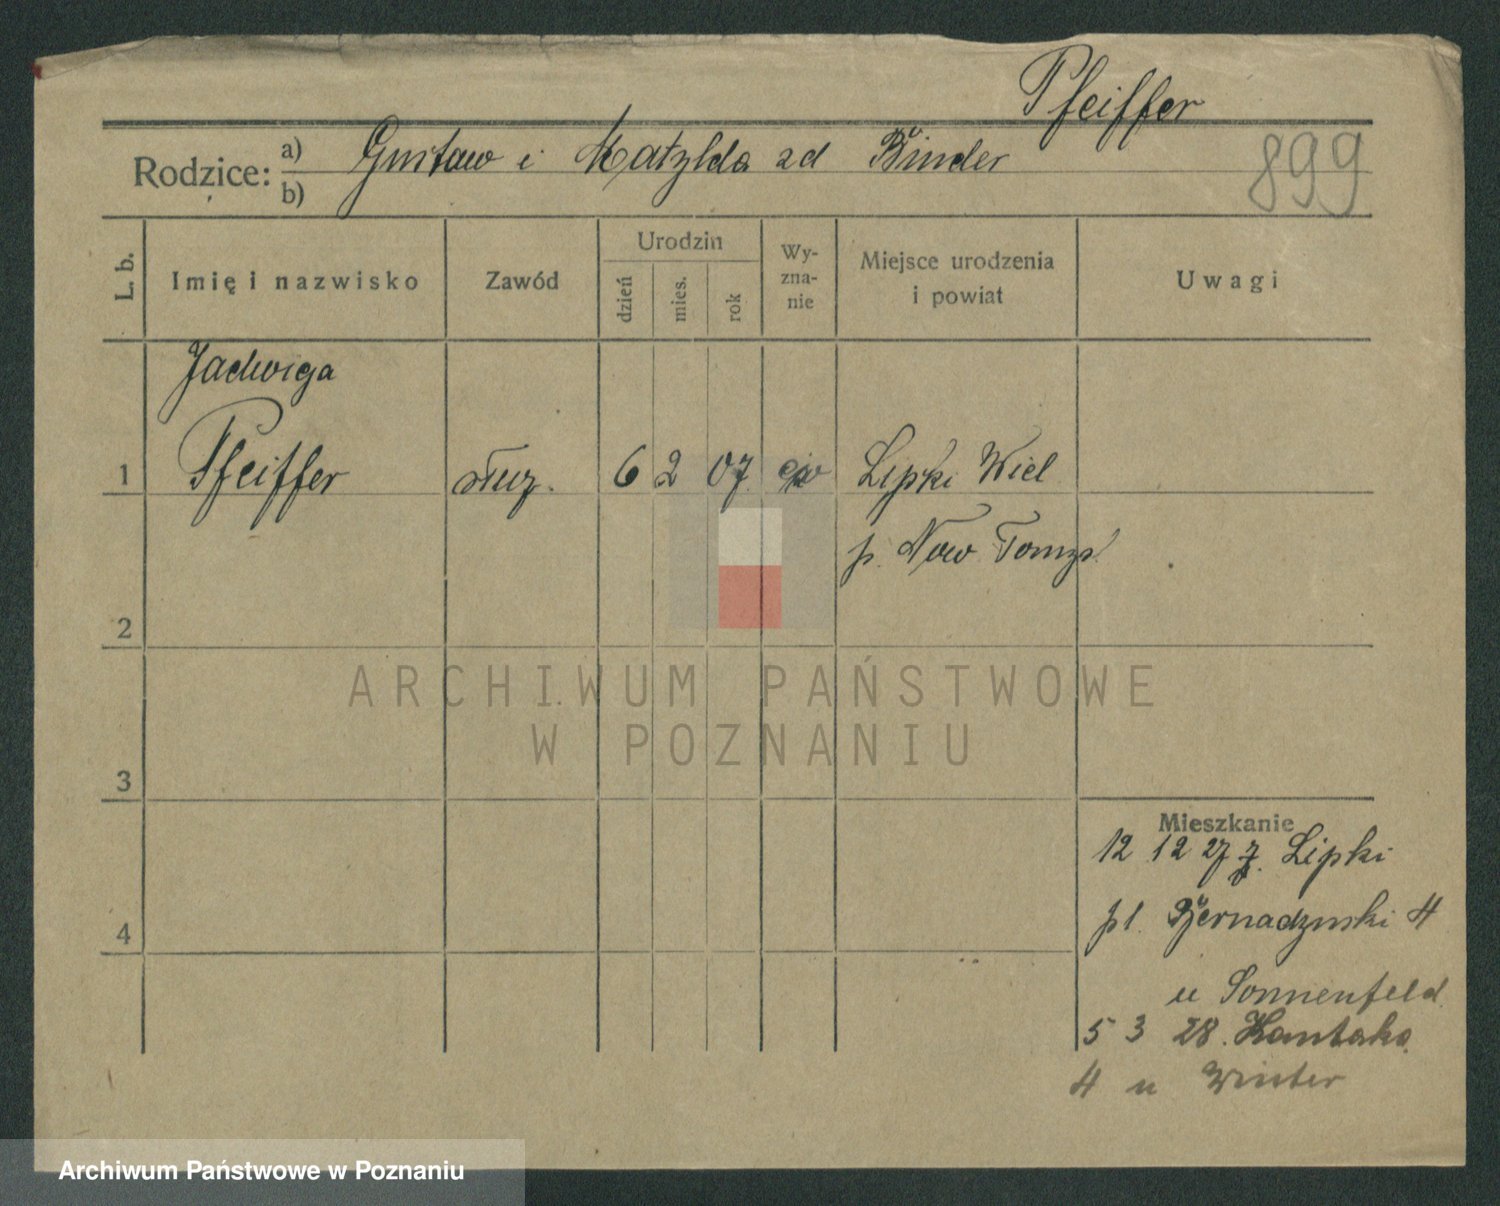 Pfeiffer
Rodzice: a) Gustaw i Matylda zd Binder
b)
899
L. b.
Imię i nazwisko
Zawód
Urodzin
dzień
mies.
rok
Wy-
zna-
nie
Miejsce urodzenia
i powiat
Uwagi
Jadwiga
1 Pfeiffer służ. 6 2 07. ew Lipki Wiel
p. Now Tomyśl
2
3
4
Mieszkanie
12 12 27 z Lipki
pl. Bernadynski 4
u Sonnenfeld
5 3 28. Kantaka
4 u Winter
ARCHIWUM PAŃSTWOWE
W POZNANIU
Archiwum Państwowe w Poznaniu